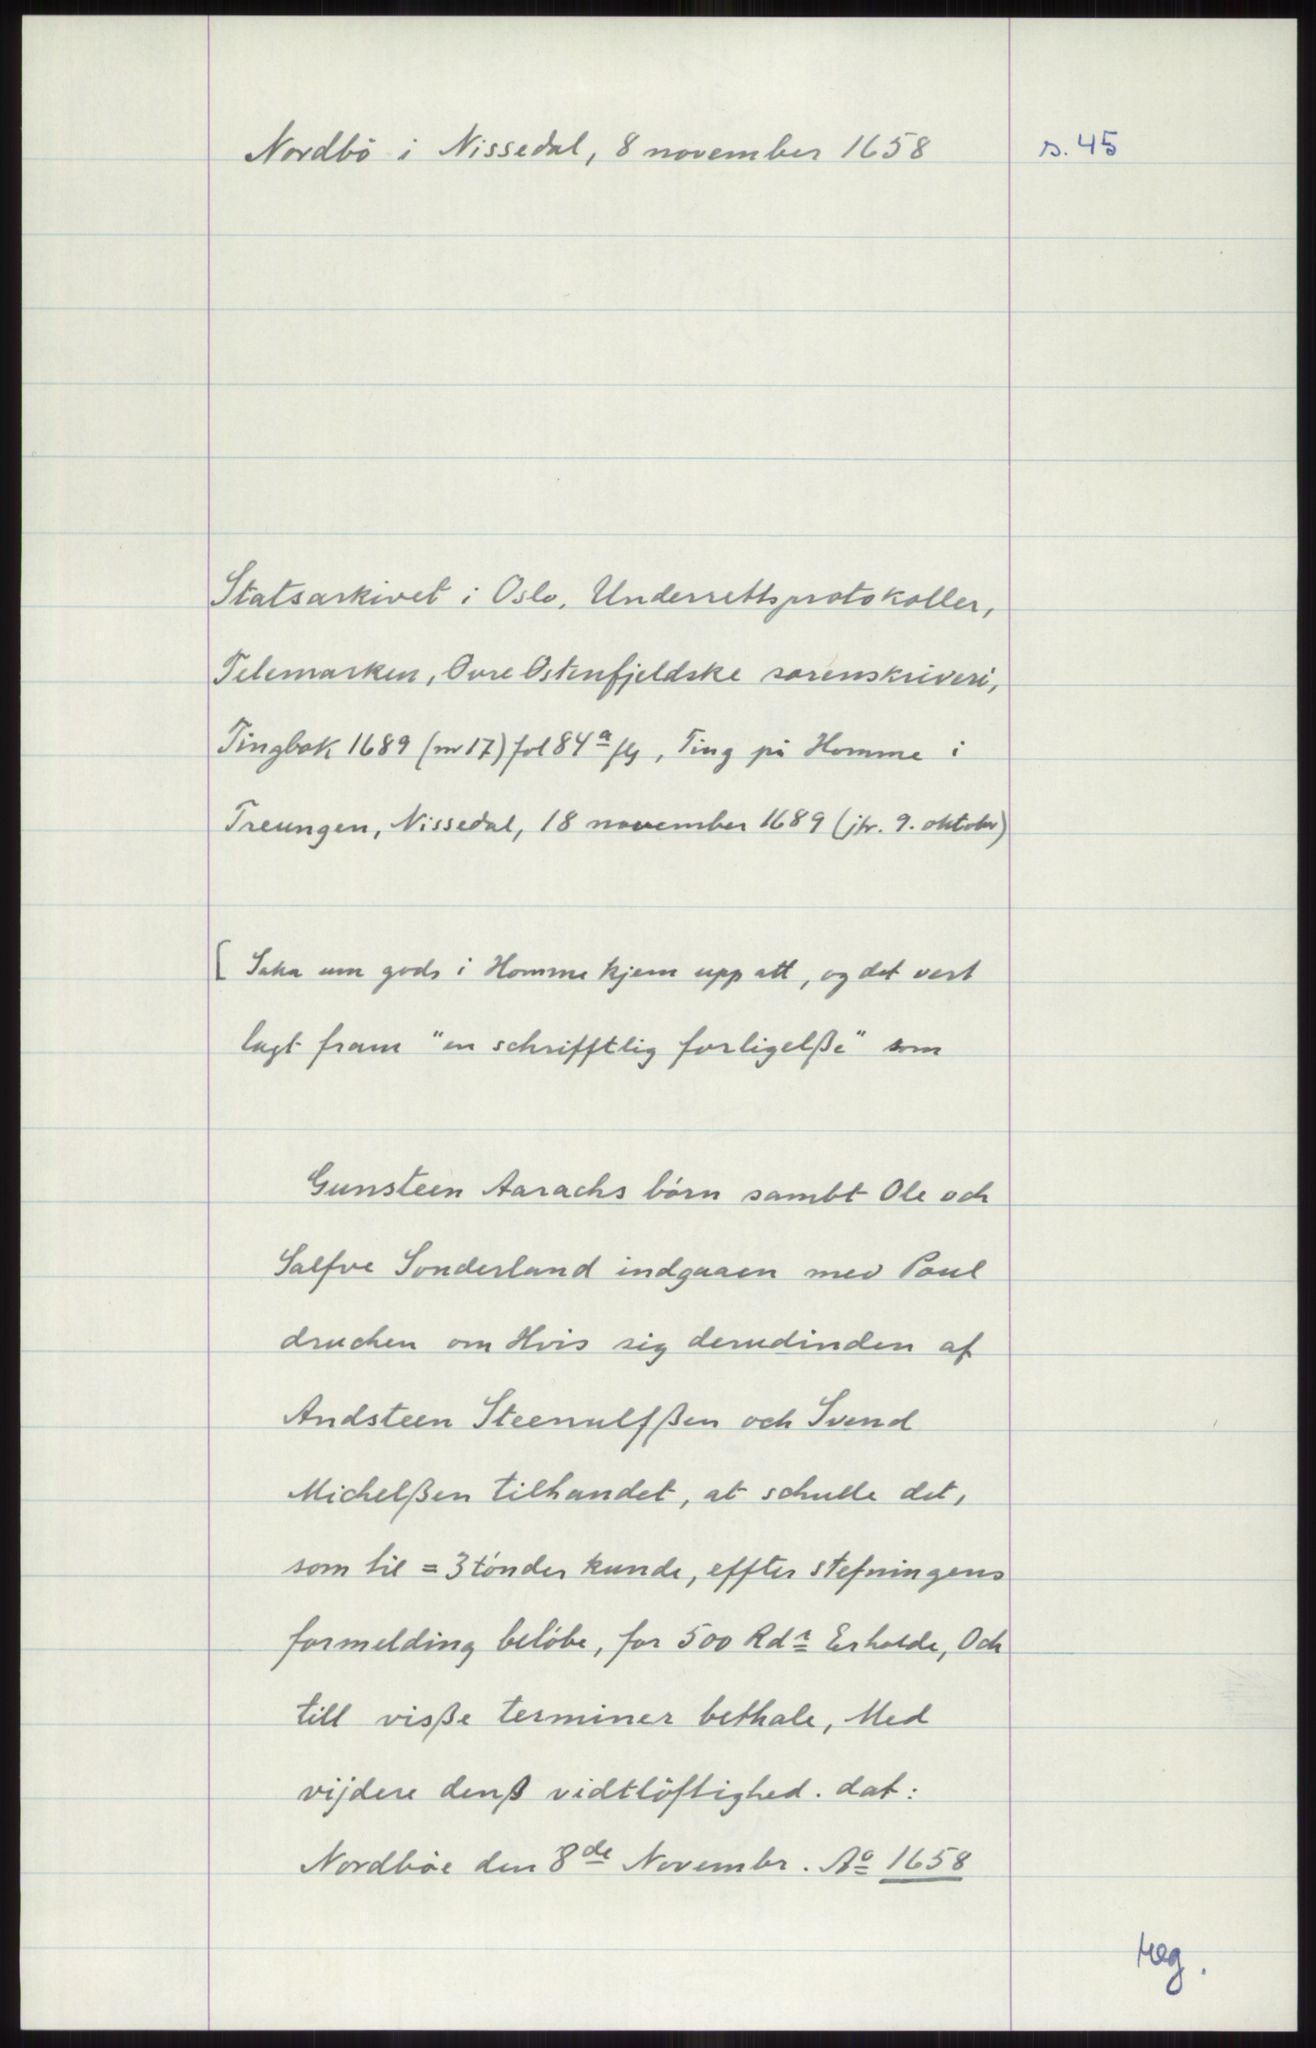 Nordbö i Nissedal, 8 november 1658
s. 45
Statsarkivet i Oslo. Underrettsprotokoller,
Telemarken, Øvre Østenfjeldske sorenskriveri,
Tingbok 1689 (nr 17) fol 84a flg, Ting på Homme i
Treungen, Nissedal, 18 november 1689 (jfr. 9. oktober)
[ Saka um gods i Homme kjem upp att, og det vert
lagt fram "en schrifftlig forligelße" som
Gunsteen Aarachs börn sambt Ole och
Salfve Sonderland indgaaen med Poul
druchen om Hvis sig derudinden af
Andsteen Steenulfßen och Svend
Michelßen tilhandet, at schulle det,
som til = 3 tönder kunde, effter stefningens
formelding belöbe, for 500 Rdr Erholde, Och
till viße terminer bethale, Med
vijdere denß vidtlöftighed. dat:
Nordböe den 8de Novembr. Ao 1658
Reg.